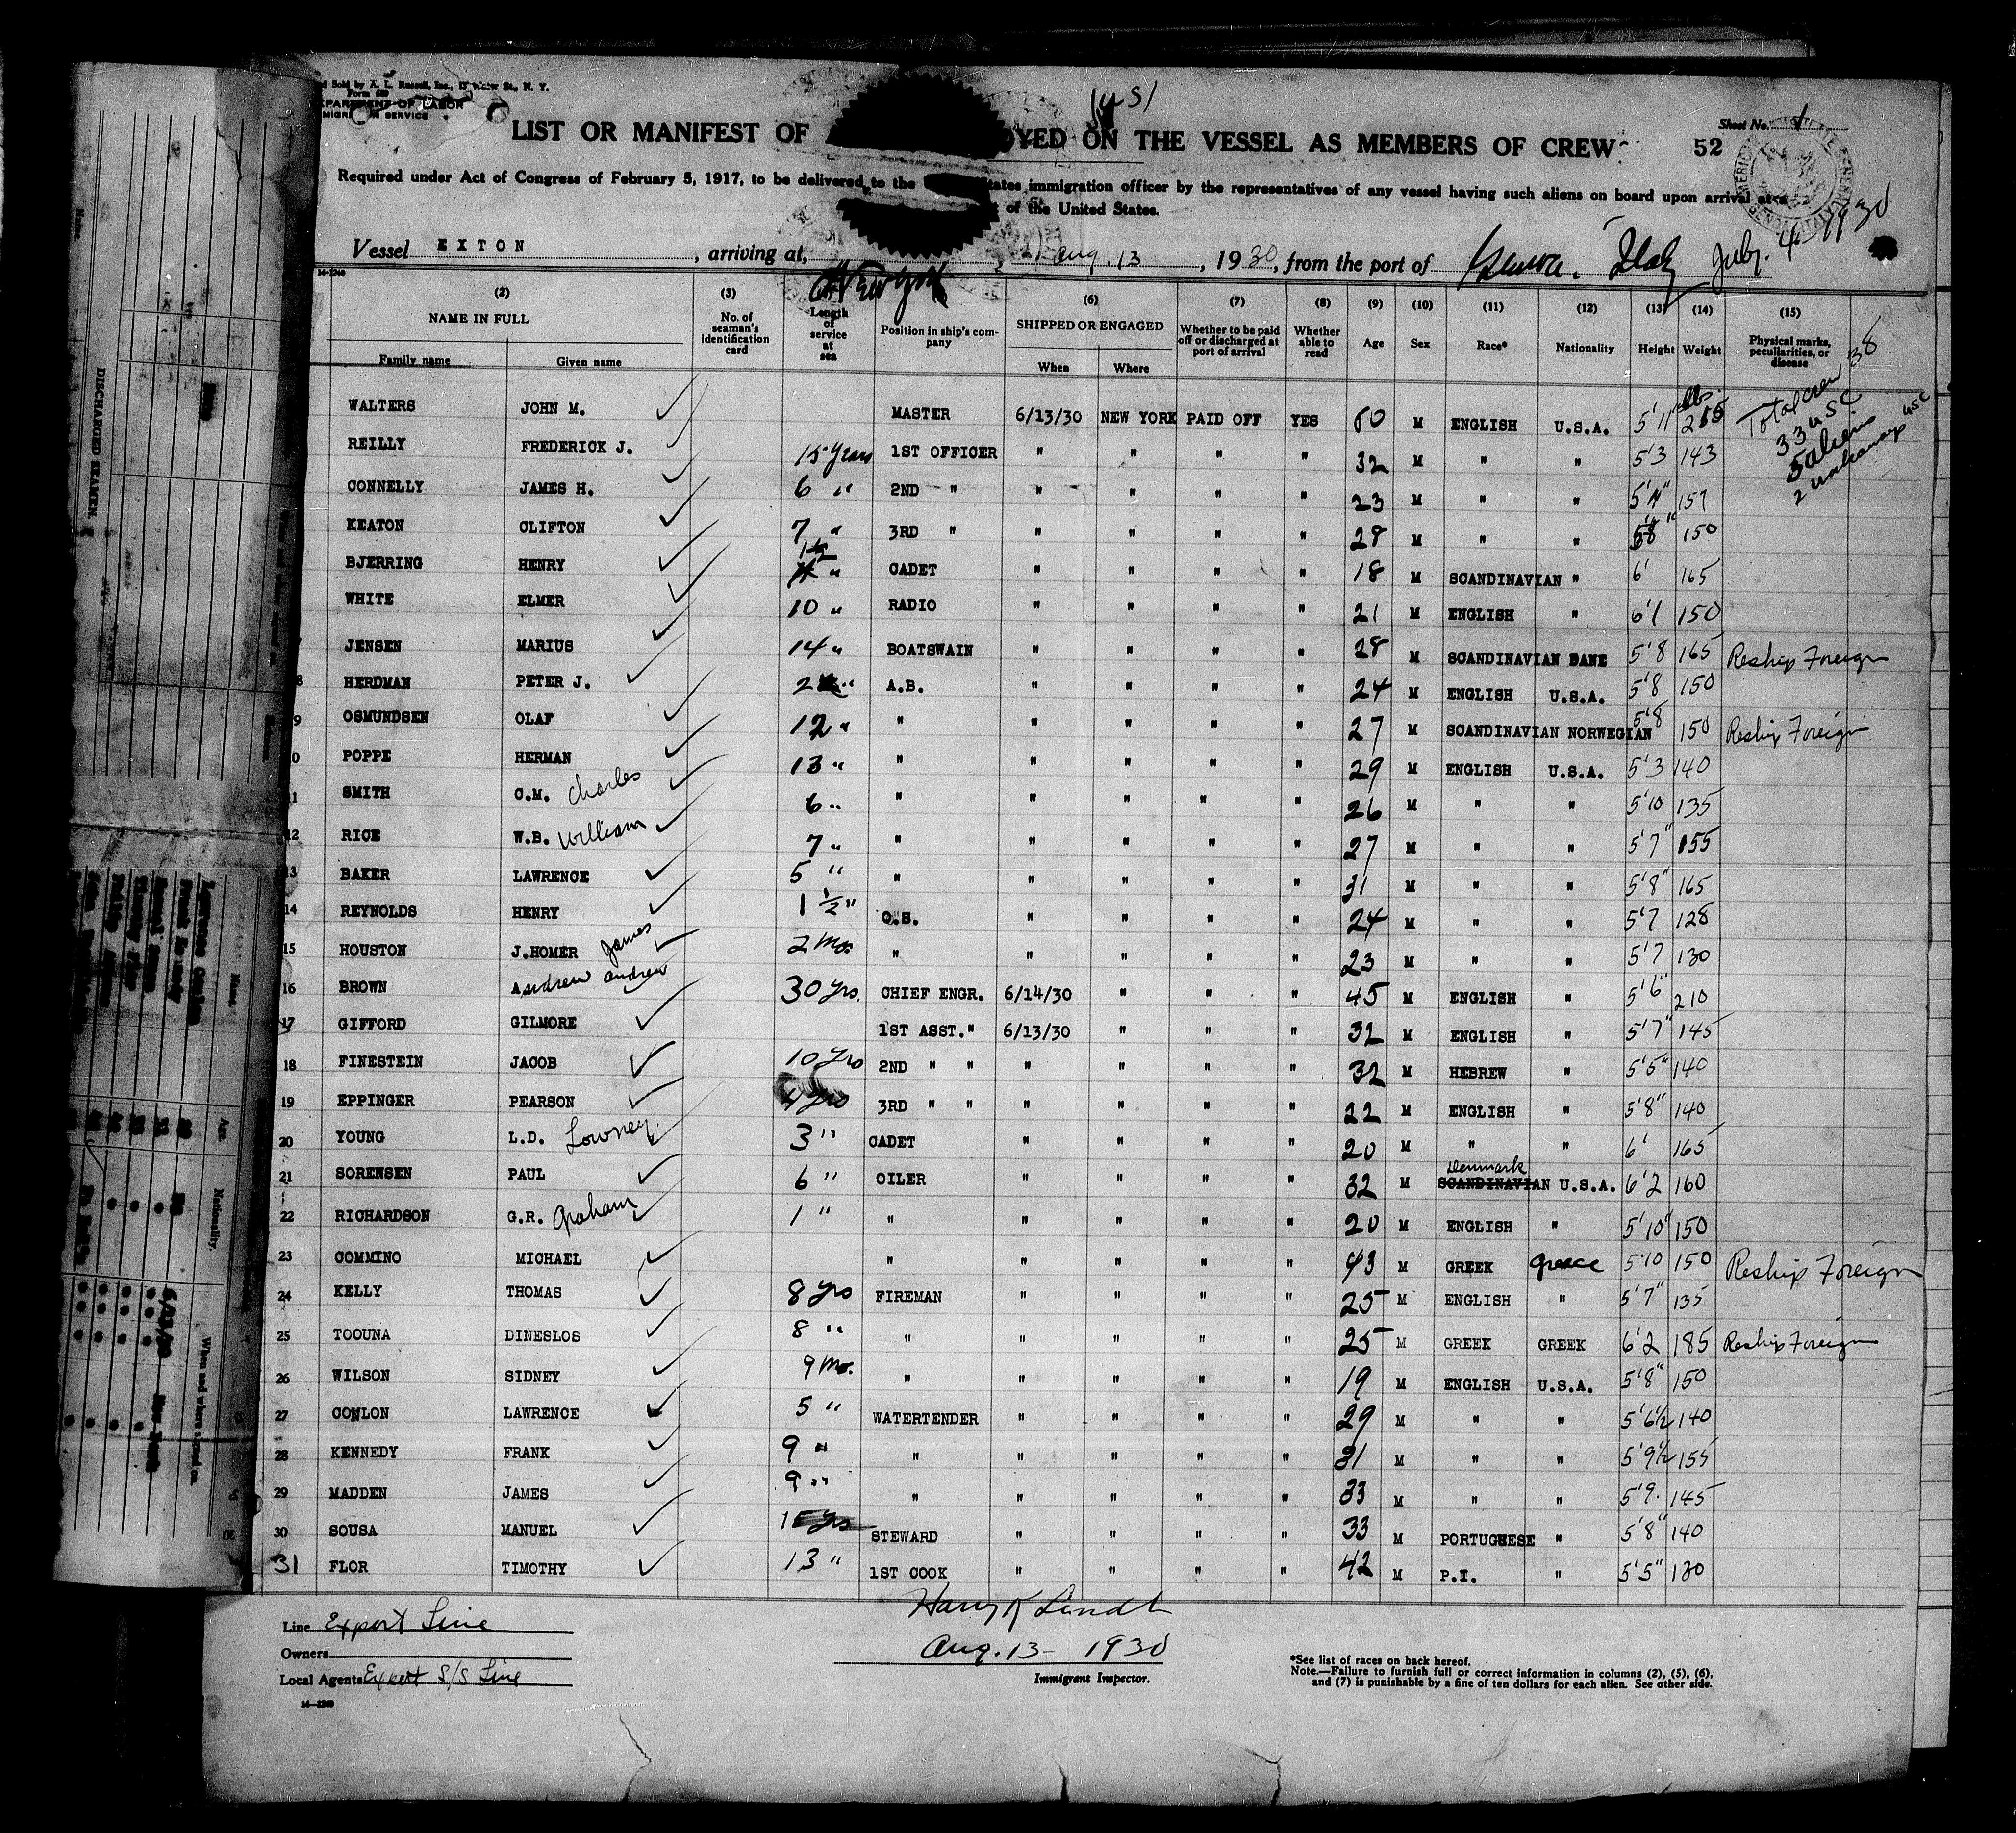 d Sold by A. L. Russell, Inc., Water St., N. Y.
Form 689
DEPARTMENT OF LABOR
IMMIGRATION SERVICE
Sheet No. 1
LIST OR MANIFEST OF OYED ON THE VESSEL AS MEMBERS OF CREW 52
Required under Act of Congress of February 5, 1917, to be delivered to the tates immigration officer by the representatives of any vessel having such aliens on board upon arrival at a
of the United States.
Vessel EXTON, arriving at, New York Aug. 13, 1930, from the port of Genoa. Italy July. 4-1930
14-1240
(2) (3) (6) (7) (8) (9) (10) (11) (12) (13) (14) (15)
NAME IN FULL No. of seaman's identification card Length of service at sea Position in ship's company SHIPPED OR ENGAGED Whether to be paid off or discharged at port of arrival Whether able to read Age Sex Race* Nationality Height Weight Physical marks, peculiarities, or disease
Family name Given name When Where
Total crew 38
33 USC
5 aliens
2 USC
WALTERS JOHN M. MASTER 6/13/30 NEW YORK PAID OFF YES M ENGLISH U.S.A. 5'11" lbs.
REILLY FREDERICK J. 15 years 1ST OFFICER " " " " 32 M " " 5'3 143
CONNELLY JAMES H. 6 " 2ND " " " " " 23 M " " 157
KEATON CLIFTON 7 " 3RD " " " " " 28 M " " 150
BJERRING HENRY 1½ " CADET " " " " 18 M SCANDINAVIAN " 6' 165
WHITE ELMER 10 " RADIO " " " " 21 M ENGLISH " 6'1 150
JENSEN MARIUS 14 " BOATSWAIN " " " " 28 M SCANDINAVIAN DANE 5'8 165 Reship Foreign
8 HERDMAN PETER J. 2 " A.B. " " " " 24 M ENGLISH U.S.A. 5'8 150
9 OSMUNDSEN OLAF 12 " " " " " " 27 M SCANDINAVIAN NORWEGIAN 5'8 150 Reship Foreign
0 POPPE HERMAN 13 " " " " " " 29 M ENGLISH U.S.A. 5'3 140
11 SMITH C.M. Charles 6 " " " " " " 26 M " " 5'10 135
12 RICE W.B. William 7 " " " " " " 27 M " " 5'7" 155
13 BAKER LAWRENCE 5 " " " " " " 31 M " " 5'8" 165
14 REYNOLDS HENRY 1½ " O.S. " " " " 24 M " " 5'7 128
15 HOUSTON J.HOMER James 2 Mos " " " " " 23 M " " 5'7 130
16 BROWN Andrew Andrew 30 yrs. CHIEF ENGR. 6/14/30 " " " 45 M ENGLISH " 5'6" 210
17 GIFFORD GILMORE 1ST ASST." 6/13/30 " " " 32 M ENGLISH " 5'7" 145
18 FINESTEIN JACOB 10 yrs 2ND " " " " " " 32 M HEBREW " 5'5" 140
19 EPPINGER PEARSON 4 yrs 3RD " " " " " " 22 M ENGLISH " 5'8" 140
20 YOUNG L.D. Lowney 3 " CADET " " " " 20 M " " 6' 165
21 SORENSEN PAUL 6 " OILER " " " " 32 M Denmark SCANDINAVIAN U.S.A. 6'2 160
22 RICHARDSON G.R. Graham 1 " " " " " " 20 M ENGLISH " 5'10" 150
23 COMMINO MICHAEL " " " " " 43 M GREEK Greece 5'10 150 Reship Foreign
24 KELLY THOMAS 8 yrs FIREMAN " " " " 25 M ENGLISH " 5'7" 135
25 TOOUNA DINESLOS 8 " " " " " " 25 M GREEK GREEK 6'2 185 Reship Foreign
26 WILSON SIDNEY 9 Mo. " " " " " 19 M ENGLISH U.S.A. 5'8" 150
27 CONLON LAWRENCE 5 " WATERTENDER " " " " 29 M " " 5'6½ 140
28 KENNEDY FRANK 9 " " " " " " 31 M " " 5'9½ 155
29 MADDEN JAMES 9 " " " " " " 33 M " " 5'9. 145
30 SOUSA MANUEL 15 yrs STEWARD " " " " 33 M PORTUGUESE " 5'8" 140
31 FLOR TIMOTHY 13 " 1ST COOK " " " " 42 M P.I. " 5'5" 130
Line Export Line
Owners
Local Agents Export S/S Line
14-1240
Harry K Landt
Aug. 13- 1930
Immigrant Inspector.
*See list of races on back hereof.
Note.—Failure to furnish full or correct information in columns (2), (5), (6),
and (7) is punishable by a fine of ten dollars for each alien. See other side.
DISCHARGED SEAMEN.
Name.
Age.
Nationality.
When and where signed on.